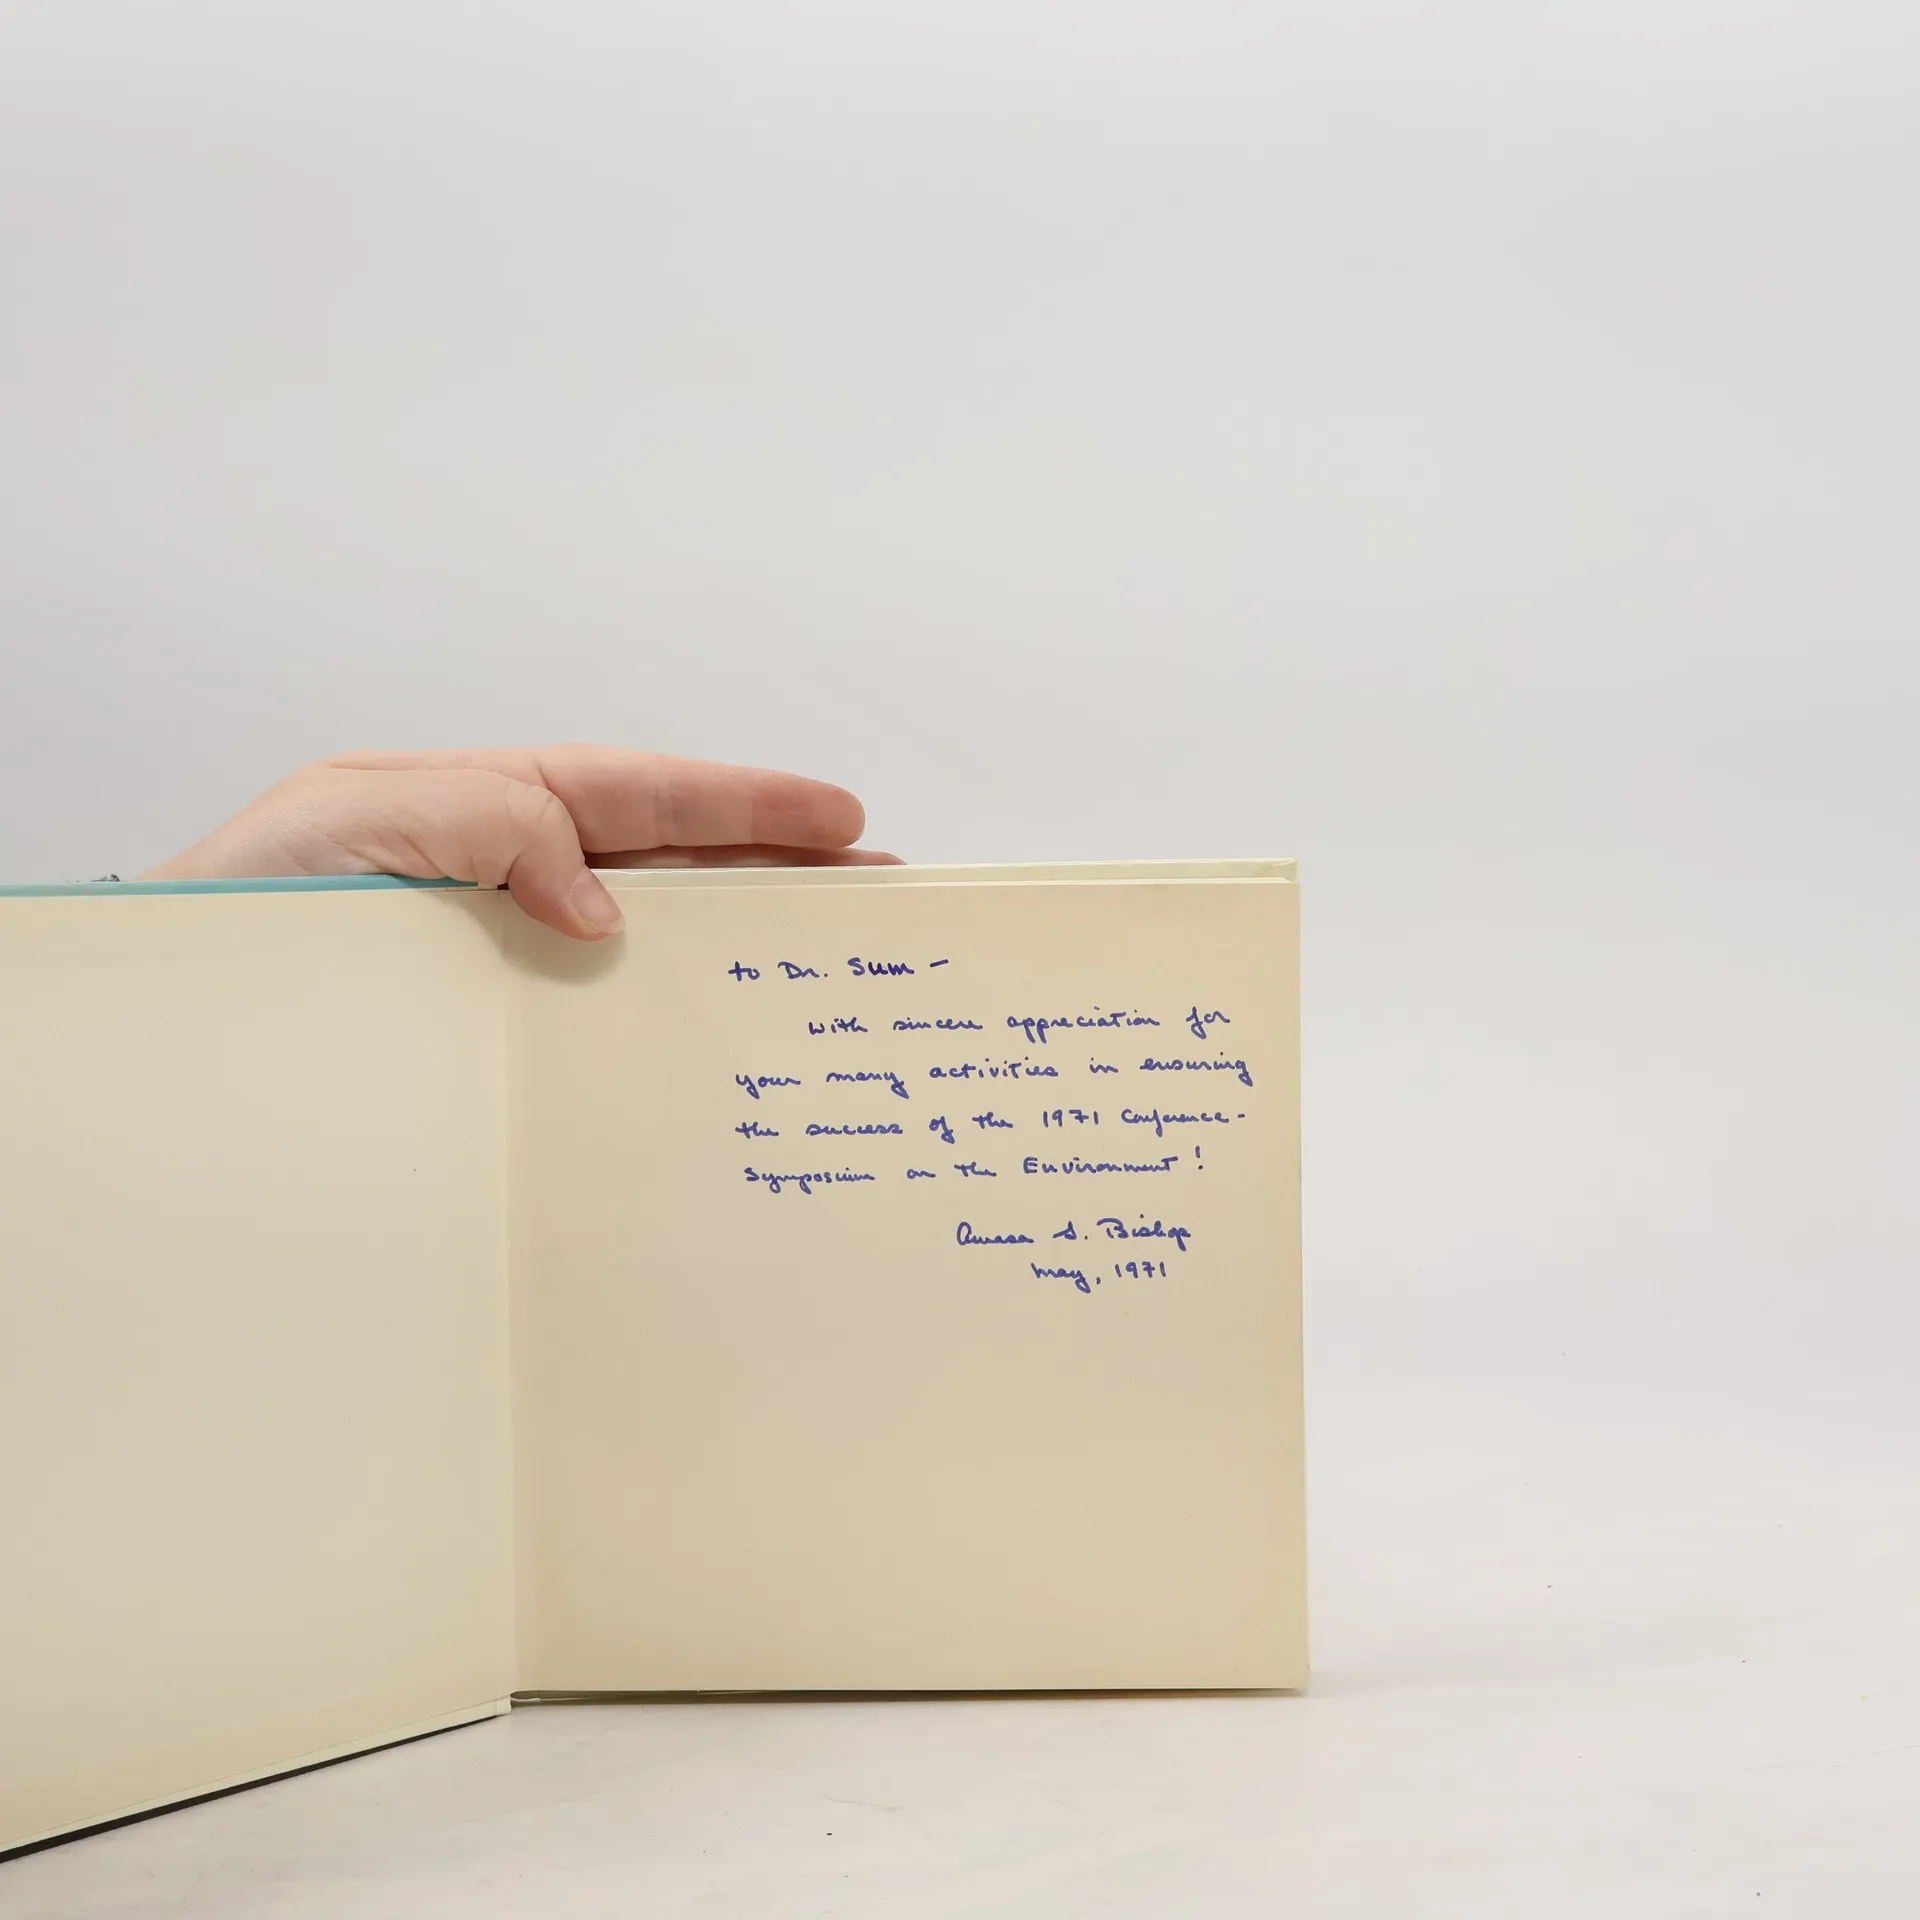 to Dr. Sum –
With sincere appreciation for
your many activities in ensuring
the success of the 1971 Conference-
Symposium on the Environment!
Amasa S. Bishop
May, 1971